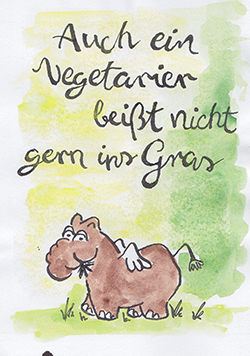 Auch ein
Vegetarier
beißt nicht
gern ins Gras